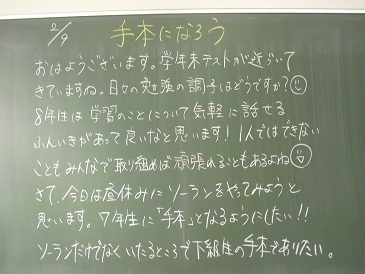 2/9
手本になろう
おはようございます。学年末テストが近づいて
きていますね。日々の勉強の調子はどうですか?
8年生は学習のことについて気軽に話せる
ふんいきがあって良いなと思います！1人ではできない
こともみんなで取り組めば頑張れることもあるよね
さて、今日は昼休みにソーランをやってみようと
思います。7年生に「手本」となるようにしたい!!
ソーランだけでなくいたるところで下級生の手本でありたい。